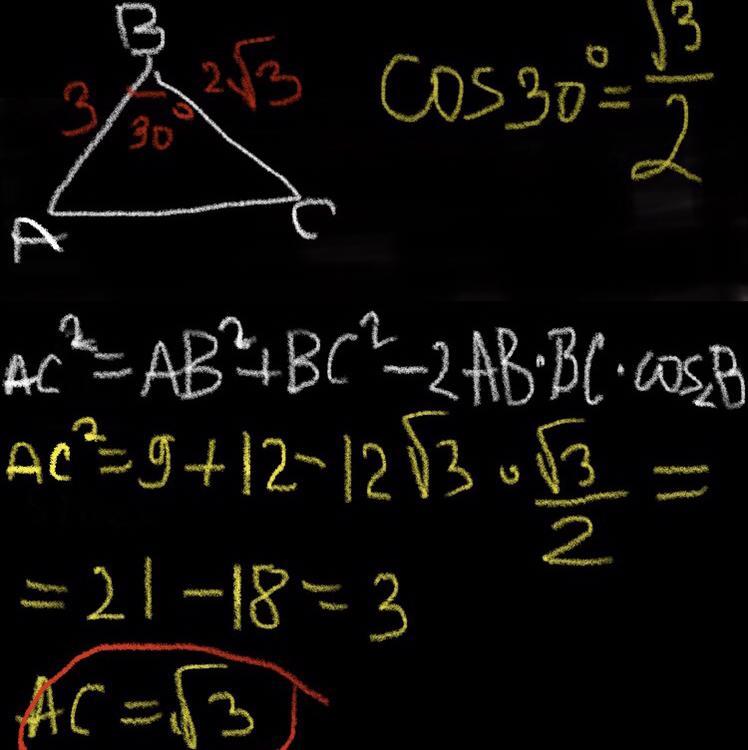 B
3 2√3
30°
A C
cos30° = √3/2
AC² = AB² + BC² - 2AB · BC · cos∠B
AC² = 9 + 12 - 12√3 · √3/2 =
= 21 - 18 = 3
AC = √3